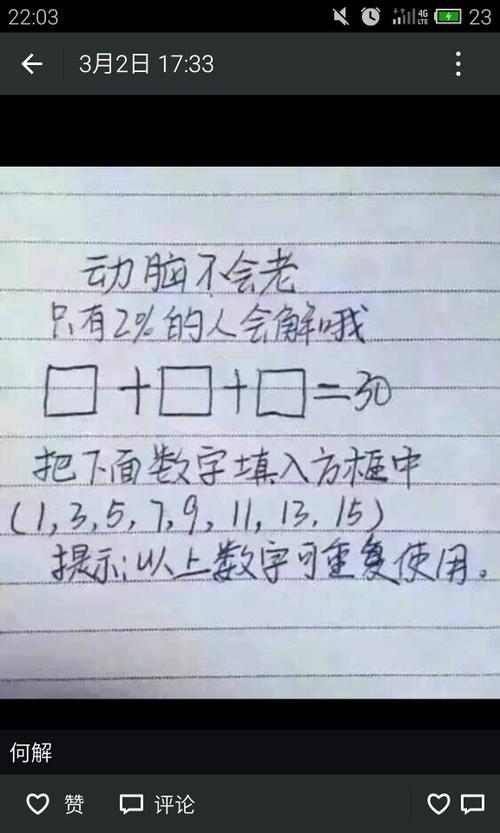 22:03
4G
LTE
23
3月2日 17:33
动脑不会老
只有2%的人会解哦
□+□+□=30
把下面数字填入方框中
(1,3,5,7,9,11,13,15)
提示:以上数字可重复使用。
何解
赞
评论